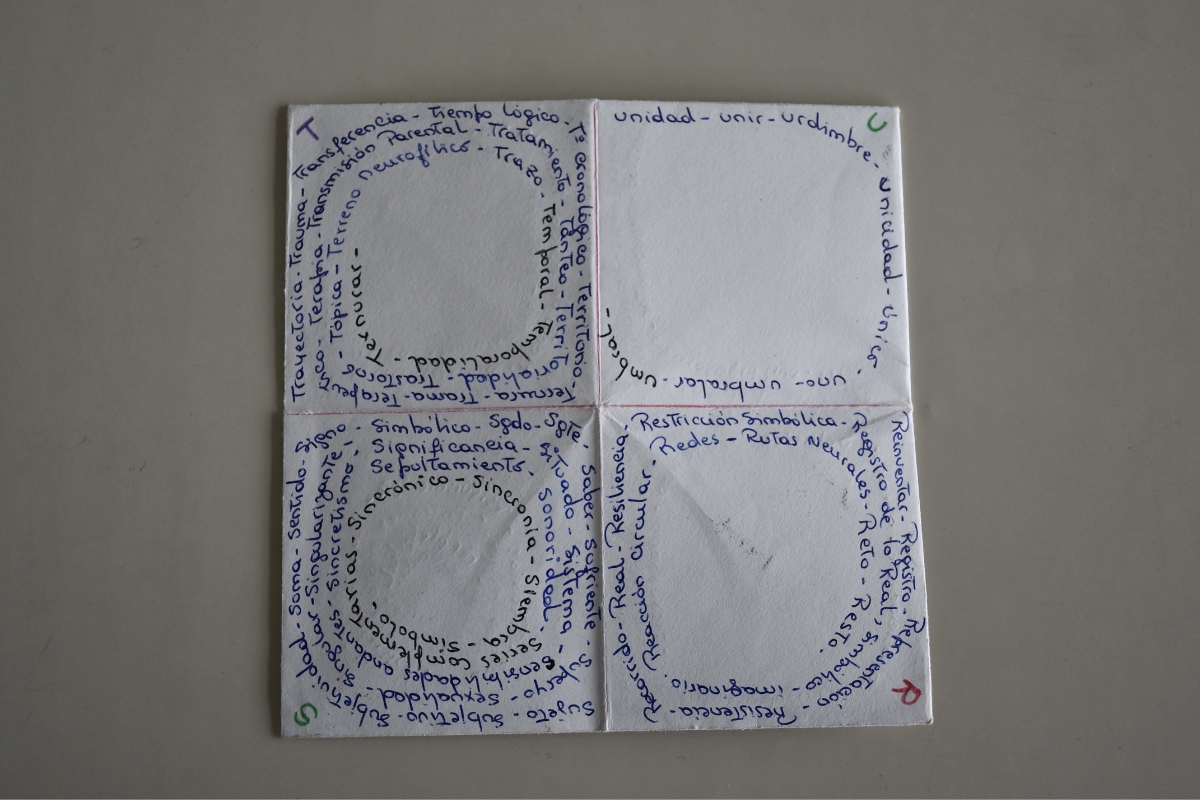 T
Trayectoria - Trauma - Transferencia - Tiempo Lógico - Tº cronológico - Territorio - Ternura - Trama - Terapeútico - Terapia - Transmisión Parental - Tratamiento - Tanteo - Territorialidad - Trastorno - Tópica - Terreno Neurofílico - Trazo - Temporal - Temporalidad - Ternurar -
U
unidad - unir - urdimbre - unicidad - único - uno - umbralar - umbral -
S
Sujeto - subjetivo - Subjetividad - Soma - Sentido - Signo - Simbólico - Sgdo - Sgte - Saber - Sufriente - Superyo - Sexualidad - Singular - Singularizante - Significancia - Situado - Sistema - Sensibilidades andantes - Sincretismo - Sepultamiento - Sonoridad - Series Complementarias - Sincrónico - Sincronia - Siembra - Simbolo -
R
Reinventar - Registro - Representación - Resistencia - Recorrido - Real - Resiliencia - Restricción Simbólica - Registro de lo Real, simbólico - imaginario. Reacción Circular. Redes - Rutas Neurales - Reto - Resto.